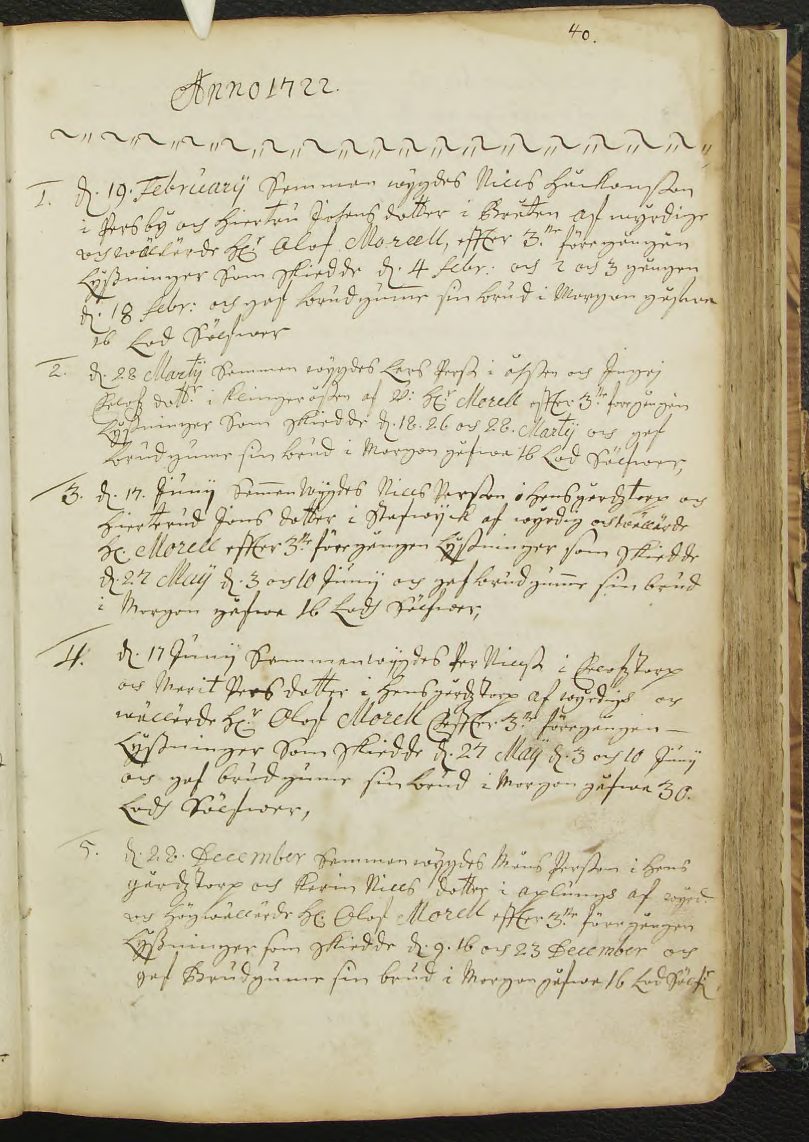 40.
Anno 1722.
1. d. 19. February Sammanwygdes Nills Håkansson
i Persby och Hiertru Johans dotter i Bråten af wyrdige
och wällärde Hr Olof Morell, effter 3ne föregångån
Lyßninger Som skiedde d. 4 Febr: och 2 och 3 gången
d. 18 Febr: och gaf brudgumme sin brud i Morgon gåfwa
16 Lod Sölfwer
2. d. 28 Martij Sammanwygdes Lars Perss i och
dottr i af V: Hr Morell effter 3ne föregången
Lyßninger Som skiedde d. 18. 26 och 28. Martij och gaf
brudgume sin brud i Morgon gåfwa 16 Lod Sölfwer,
3. d. 17. Junij Sammenwygdes Nills Persson i Hensgårdztorp och
Hiertrud Jons dotter i Stafwyck af wyrdig och wällärde
Hr. Morell effter 3ne föregången Lyßninger som skiedde
d. 27 Maij d. 3 och 10 Junij och gaf brudgume sin brud
i Morgon gåfwa 16 Lodh Sölfwer,
4. d. 17 Junij Sammenwygdes Per Nillss i Elofztorp
och Marit Pers dotter i Hensgårdztorp af wyrdige och
wällärde Hr Olof Morell effter 3ne föregången
Lyßninger Som skiedde d. 27 Maij d. 3 och 10 Junij
och gaf brudgume sin brud i Morgon gåfwa 30.
Lodh Sölfwer,
5. d. 28. December Sammanwygdes Måns Persson i Hens
gårdztorp och Karin Nills dotter i aplungs af wyrd.
och högwällärde Hr. Olof Morell effter 3ne föregången
Lyßninger som skiedde d. 9. 16 och 23 December och
gaf Brudgume sin brud i Morgongåfwa 16 Lod Sölfr